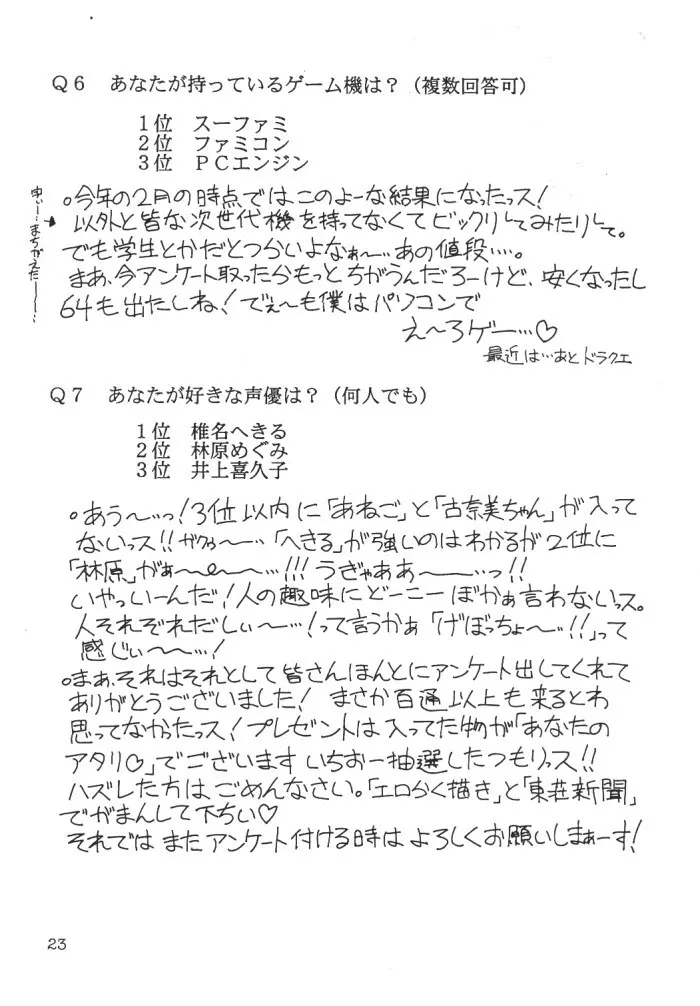 Q6 あなたが持っているゲーム機は?(複数回答可)
1位 スーファミ
2位 ファミコン
3位 PCエンジン
。今年の2月の時点ではこのよーな結果になったっス!
以外と皆な次世代機を持ってなくてビックリしてみたりして。
でも学生とかだとつらいよなぁ~…あの値段…。
まあ、今アンケート取ったらもっとちがうんだろーけど、安くなったし
64も出たしね!でぇ~も僕はパソコンで
え~ろゲー…♡
最近は…あとドラクエ
まちがえた
Q7 あなたが好きな声優は?(何人でも)
1位 椎名へきる
2位 林原めぐみ
3位 井上喜久子
。あう~…っ!3位以内に「あねご」と「古奈美ちゃん」が入って
ないっス!!ガクッ~…「へきる」が強いのはわかるが2位に
「林原」がぁ~~~…!!!うぎゃああ~…っ!!
いやっいーんだ!人の趣味にどーこーぼかぁ言わないっス。
人それぞれだしぃ~…!って言うかぁ「げぼっちょ~…!!」って
感じぃ~…!
。まぁ、それはそれとして皆さんほんとにアンケート出してくれて
ありがとうございました!まさか百通以上も来るとわ
思ってなかたっス!プレゼントは入ってた物が「あなたの
アタリ♡」でございますいちおー抽選したつもりっス!!
ハズレた方はごめんなさい。「エロらく描き」と「東荘新聞」
でがまんして下ちい♡
それではまたアンケート付ける時はよろしくお願いしまぁーす!
23